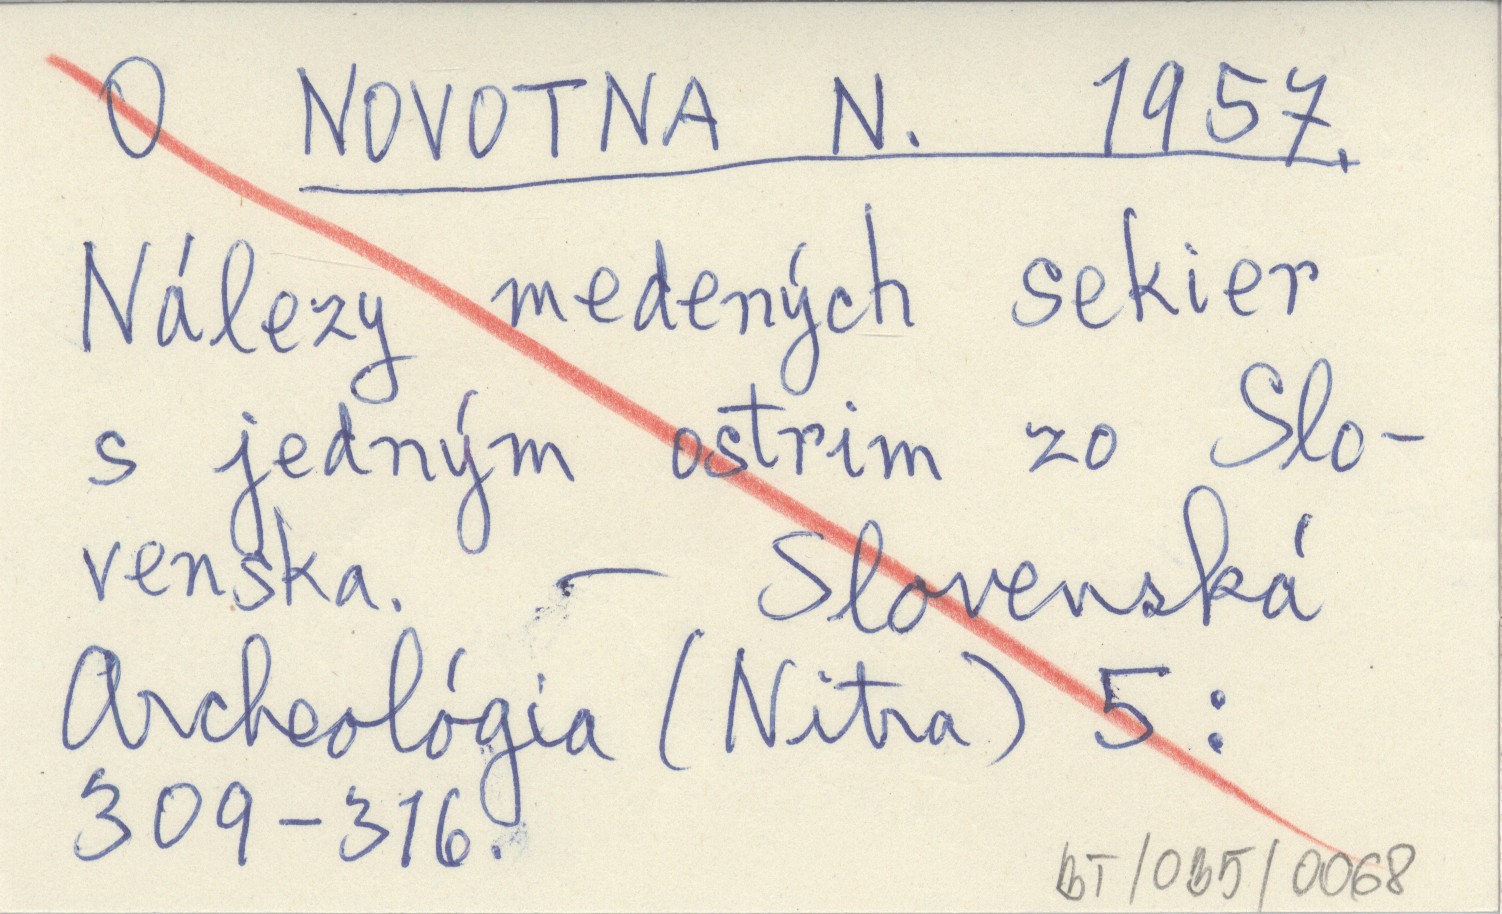 O NOVOTNA N. 1957.
Nálezy medených sekier
s jedným ostrim zo Slo-
venska. — Slovenská
Archeológia (Nitra) 5:
309-316.
BT/OB5/0068